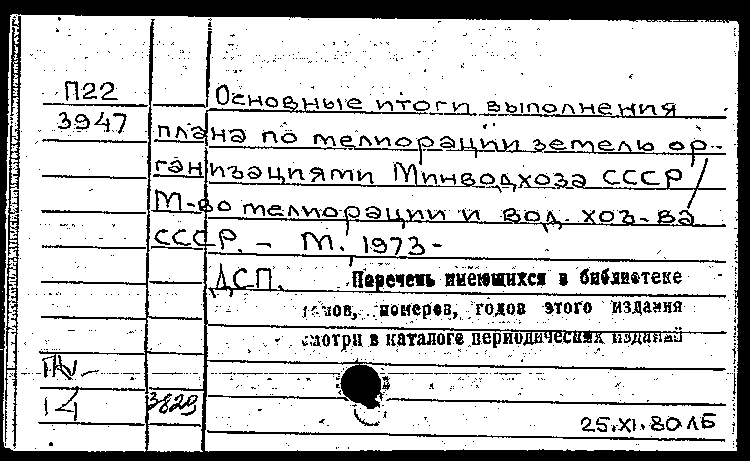 П22
3947
Основные итоги выполнения
плана по мелиорации земель ор-
ганизациями Минводхоза СССР/
М-во мелиорации и вод. хоз-ва
СССР. – М., 1973-
ДСП. Перечень имеющихся в библиотеке
томов, номеров, годов этого издания
смотри в каталоге периодических изданий
14 3829
25.XI.80 ЛБ